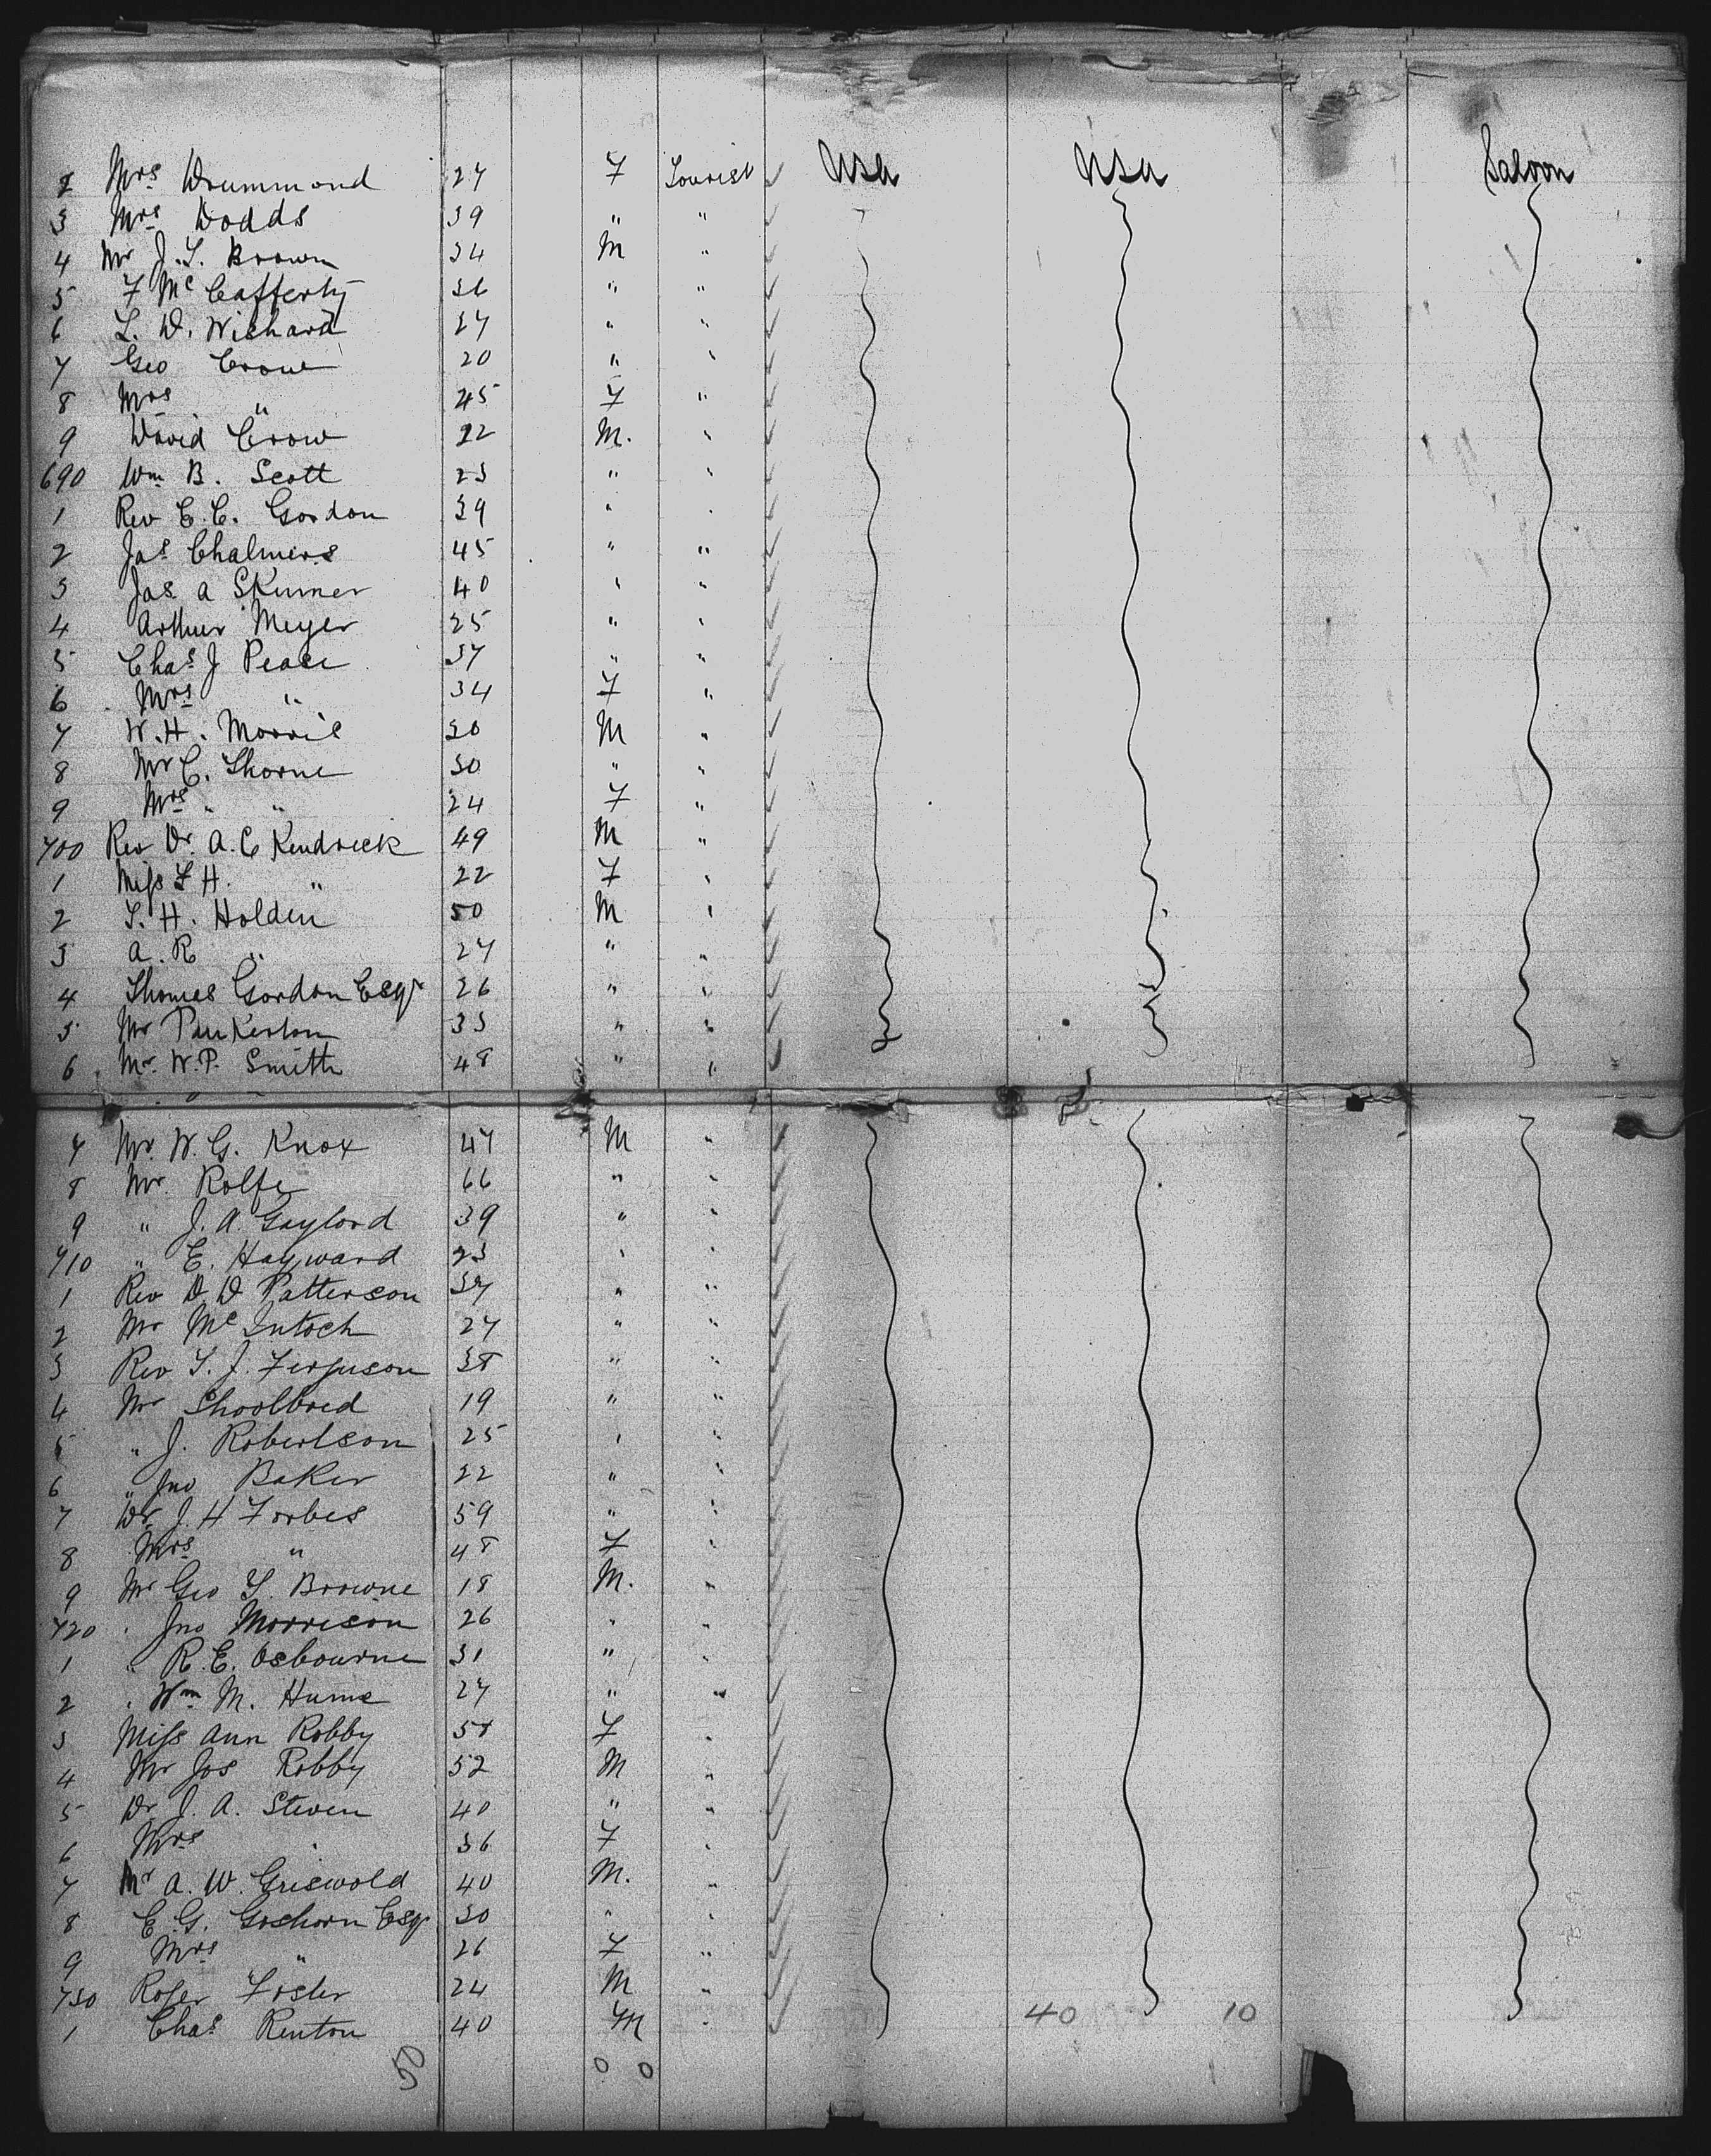 2 Mrs Drummond 27 F Tourist USA USA Saloon
3 Mrs Dodds 39 " "
4 Mr J. T. Brown 34 M "
5 F McCafferty 36 " "
6 L. D. Wishard 27 " "
7 Geo Crow 20 " "
8 Mrs " 45 F "
9 David Crow 22 M. "
690 Wm B. Scott 23 " "
1 Rev E. C. Gordon 39 " "
2 Jas Chalmers 45 " "
3 Jas. A Skinner 40 " "
4 Arthur Meyer 25 " "
5 Chas J Peace 37 " "
6 Mrs " 34 F "
7 W. H. Morris 30 M "
8 Mr C. Thorne 30 " "
9 Mrs " " 24 F "
700 Rev Dr. A. C Kendrick 49 M "
1 Miss F H. " 22 F "
2 T. H. Holden 50 M "
3 A. R " 27 " "
4 Thomas Gordon Esqr 26 " "
5 Mr Pinkerton 35 " "
6 Mr. W. P. Smith 48 " "
7 Mr. W. G. Knox 47 M "
8 Mr. Rolfe 66 " "
9 " J. A. Gaylord 39 " "
710 " E. Hayward 23 " "
1 Rev D. D Patterson 37 " "
2 Mr McIntosh 27 " "
3 Rev T. J. Ferguson 38 " "
4 Mr Shoolbred 19 " "
5 " J. Robertson 25 " "
6 " Jno Baker 22 " "
7 Dr. J. H Forbes 59 " "
8 Mrs " 48 F "
9 Mr Geo T. Browne 18 M. "
720 " Jno Morrison 26 " "
1 " R. E. Osbourne 31 " "
2 " Wm M. Hume 27 " "
3 Miss Ann Robby 58 F "
4 Mr Jos Robby 52 M "
5 Dr J. A. Steven 40 " "
6 Mrs " 36 F "
7 Mr A. W. Griswold 40 M. "
8 E. G. Goshorn Esqr 30 " "
9 Mrs " 26 F "
730 Roger Foster 24 M "
1 Chas Renton 40 M " 40 10
50 0 0